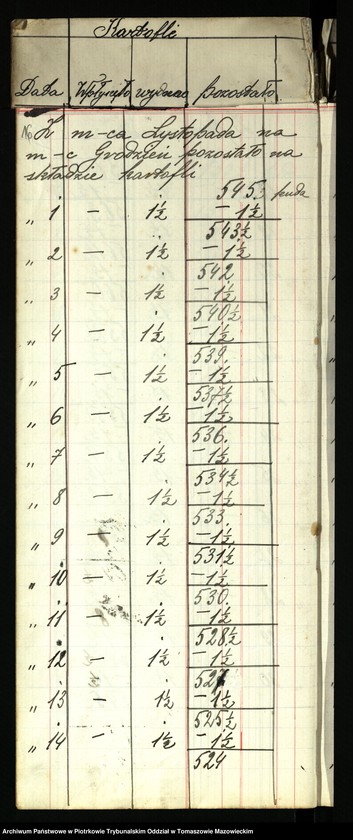 Kartofli
Data Wpłynęło wydano pozostało
Z m-ca Listopada na
m-c Grodzień pozostało na
składzie kartofli
545 puda
„ 1 — 1½ — 1½
543½
„ 2 — 1½ — 1½
542
„ 3 — 1½ — 1½
540½
„ 4 — 1½ — 1½
539.
„ 5 — 1½ — 1½
537½
„ 6 — 1½ — 1½
536.
„ 7 — 1½ — 1½
534½
„ 8 — 1½ — 1½
533
„ 9 — 1½ — 1½
531½
„ 10 — 1½ — 1½
530
„ 11 — 1½ — 1½
528½
„ 12 — 1½ — 1½
527
„ 13 — 1½ — 1½
525½
„ 14 — 1½ — 1½
524
Archiwum Państwowe w Piotrkowie Trybunalskim Oddział w Tomaszowie Mazowieckim